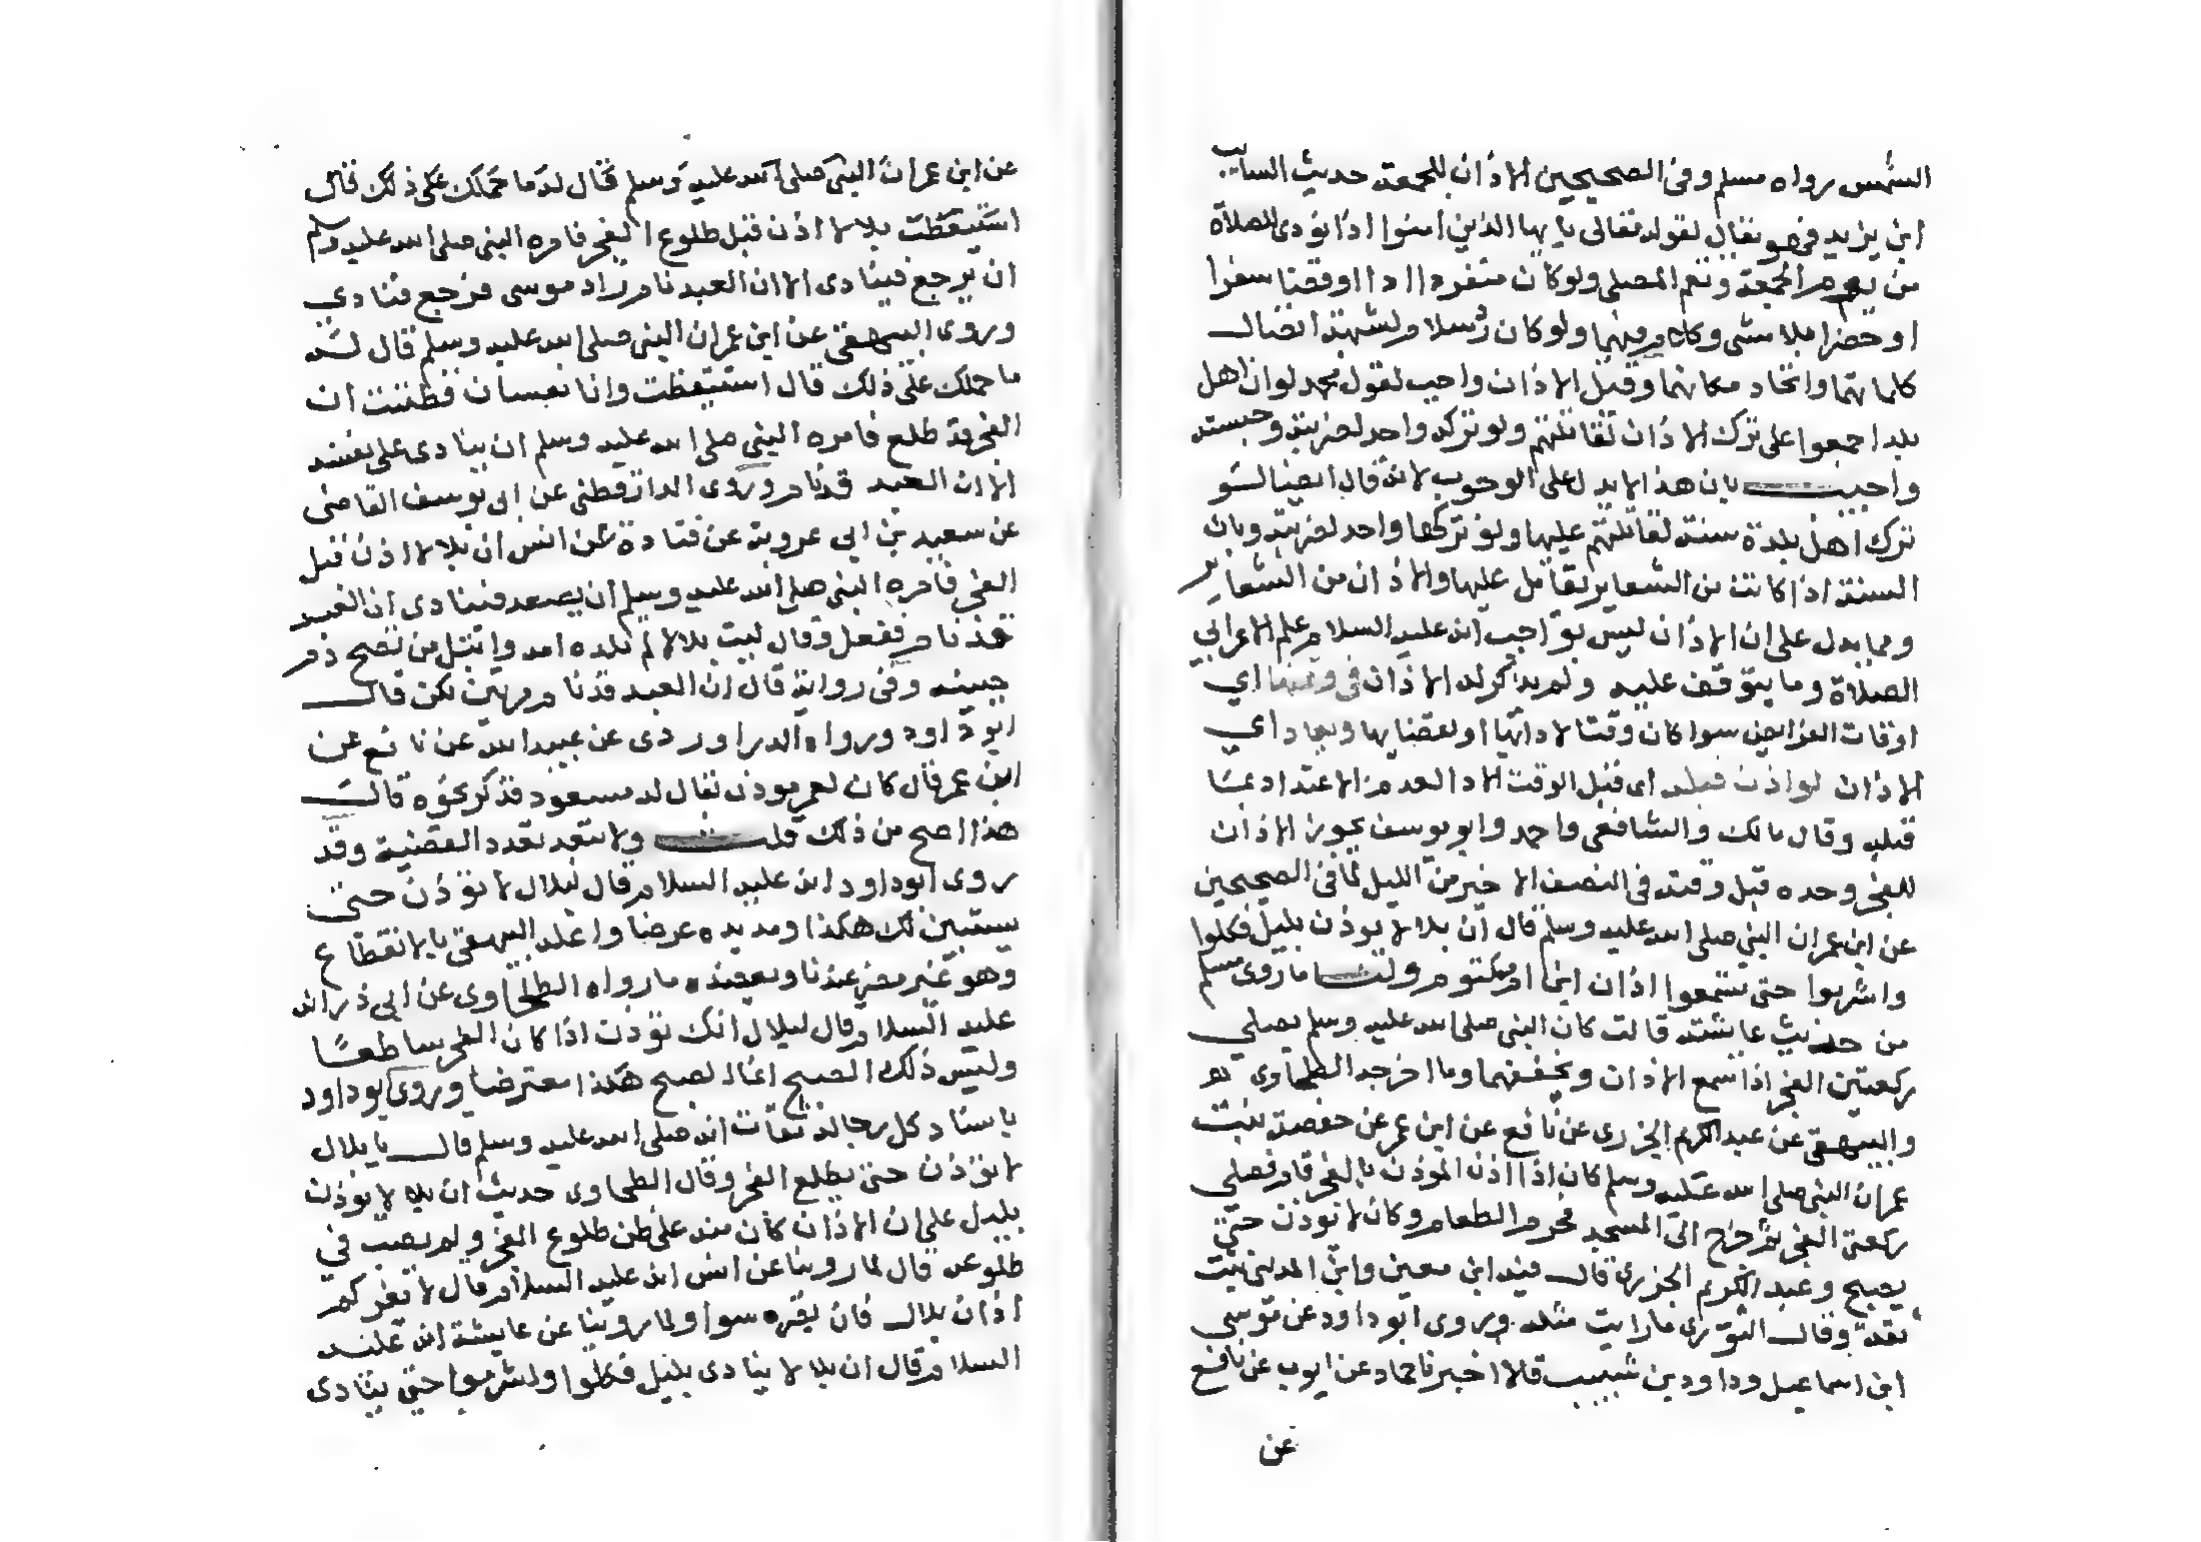 الشمس رواه مسلم وفى الصحيحين الاذان للجمعة حديث السايب
ابن يزيد فى هو يقال لقوله تعالى يايها الذين امنوا اذا نودى للصلاة
من يوم الجمعة ونعم المصلى ولو كان منفردا اداا وقضا سفرا
او حضرا بلا مشى وكلام فيهما ولو كان سلام لشهة اتصال
كلماتهما واتحاد مكانهما وقيل الاذان واجب لقول محمد لو ان اهل
بلد اجمعوا على ترك الاذان لقاتلتهم ولو تركه واحد لضربته وحبسته
واجيب بان هذا لا يدل على الوجوب لانه قال ايضا لو
ترك اهل بلدة سنة لقاتلتهم عليها ولو تركها واحد لضربته وبان
السنة اذا كانت من الشعاير يقاتل عليها والاذان من الشعاير
ومما يدل على ان الاذان ليس بواجب انه عليه السلام علم الاعرابي
الصلاة وما يتوقف عليه ولم يذكر له الاذان فى وقتها اي
اوقات الفرايض سوا كان وقتا لادائها او لقضايها ويعاد اي
الاذان لو اذن قبله اى قبل الوقت الاد العدم الاعتداد بما
قبله وقال مالك والشافعى واحمد وابو يوسف يجوز الاذان
للفجر وحده قبل وقته فى النصف الاخير من الليل لما فى الصحيحين
عن ابن عمر ان النبى صلى الله عليه وسلم قال ان بلالا يوذن بليل فكلوا
واشربوا حتى تسمعوا اذان ابن ام مكتوم ولنا ما روى مسلم
من حديث عائشة قالت كان النبى صلى الله عليه وسلم يصلي
ركعتين الفجر اذا سمع الاذان ويخففهما وما اخرجه الطحاوى
والبيهقى عن عبد الكريم الجزرى عن نافع عن ابن عمر عن حفصة بنت
عمر ان النبى صلى الله عليه وسلم كان اذا اذن الموذن بالفجر قام فصلى
ركعتى الفجر ثم خرج الى المسجد فحرم الطعام وكان لا يوذن حتى
يصبح وعبد الكريم الجزرى قال فيه ابن معين وابن المدينى ثبت
ثقة وقال الثورى ما رايت مثله وروى ابو داود عن موسى
ابن اسماعيل وداود بن شبيب قالا اخبرنا حماد عن ايوب عن نافع
عن
عن ابن عمر ان النبى صلى الله عليه وسلم قال له ما حملك على ذلك قال
استيقظت بلالا اذن قبل طلوع الفجر فامره النبى صلى الله عليه وسلم
ان يرجع فينادى الا ان العبد نام زاد موسى فرجع فنادي
وروى البيهقى عن ابن عمر ان النبى صلى الله عليه وسلم قال له
ما حملك على ذلك قال استيقظت وانا نعسان فظننت ان
الفجر قد طلع فامره النبى صلى الله عليه وسلم ان ينادى على نفسه
الا ان العبد قد نام وروى الدارقطنى عن ابى يوسف القاضى
عن سعيد بن ابى عروبة عن قتادة عن انس ان بلالا اذن قبل
الفجر فامره النبى صلى الله عليه وسلم ان يصعد فينادى ان العبد
قد نام ففعل وقال ليت بلالا لم تلده امه وابتل من نضح دم
جبينه وفى رواية قال ان العبد قد نام مرتين لكن قال
ابو داود ورواه الدراوردى عن عبيد الله عن نافع عن
ابن عمر قال كان لعمر موذن يقال له مسعود فذكر نحوه قال
هذا اصح من ذلك قلت ولا يبعد تعدد القضية وقد
روى ابو داود انه عليه السلام قال لبلال لا توذن حتى
يستبين لك هكذا ومد يده عرضا واعله البيهقى بالانقطاع
وهو غير مضر عندنا ويعضده ما رواه الطحاوى عن ابى ذر انه
عليه السلام قال لبلال انك توذن اذا كان الفجر ساطعا
وليس ذلك الصبح انما الصبح هكذا معترضا وروى ابو داود
باسناد كل رجاله ثقات انه صلى الله عليه وسلم قال يا بلال
لا توذن حتى يطلع الفجر وقال الطحاوى حديث ان بلالا يوذن
بليل على ان الاذان كان منه على ظن طلوع الفجر ولم يصب في
طلوعه قال لما روينا عن انس انه عليه السلام قال لا يغركم
اذان بلال فان بصره سوا ولما روينا عن عايشة انه عليه
السلام قال ان بلالا ينادى بليل فكلوا واشربوا حتى ينادى